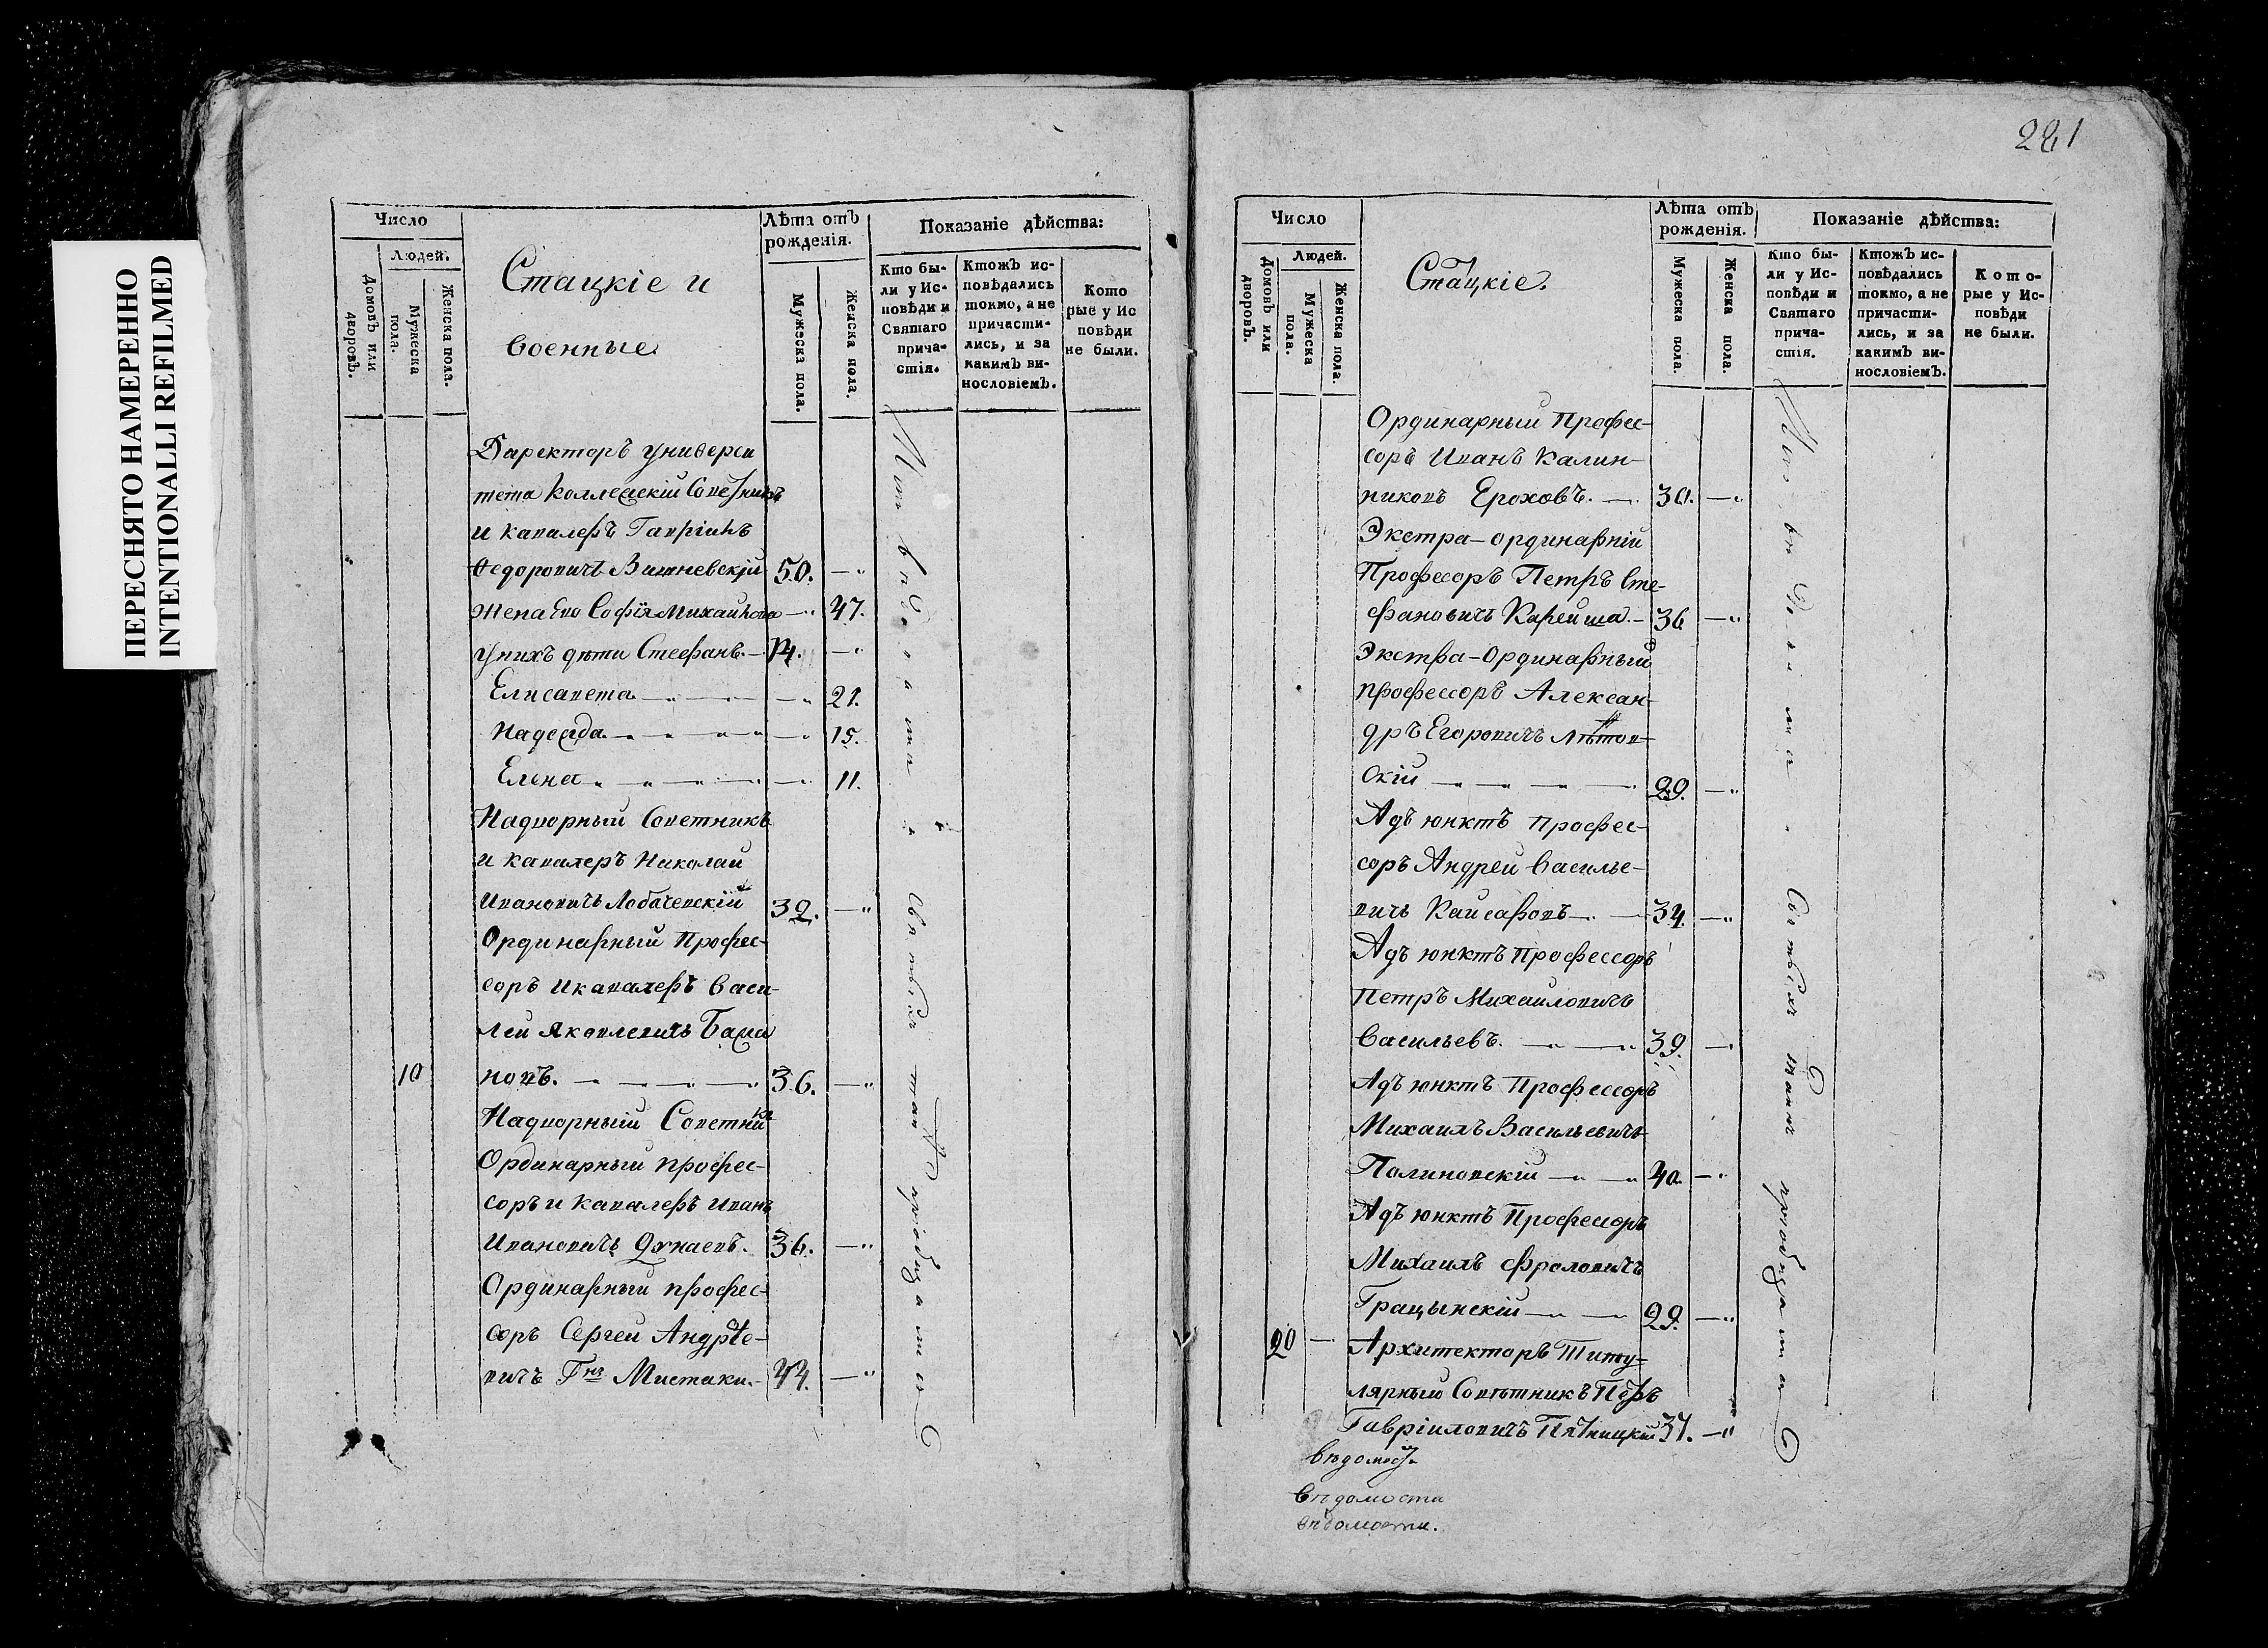 ПЕРЕСНЯТО НАМЕРЕННО
INTENTIONALLI REFILMED
Число
Людей.
Домовъ или дворовъ.
Мужеска пола.
Женска пола.
Стацкіе и
военные
Лѣта отъ
рожденія.
Мужеска пола.
Женска пола.
Показаніе дѣйства:
Кто бы-
ли у Ис-
повѣди и
Святаго
прича-
стія.
Ктожъ ис-
повѣдались
токмо, а не
причасти-
лись, и за
какимъ ви-
нословіемъ.
Кото
рые у Ис
повѣди
не были.
Директоръ универси
тета Коллежскій Советникъ
и кавалеръ Гавріилъ
Ѳедоровичъ Вишневскій 50.
Жена Его Софія Михайлова 47.
у нихъ дѣти Стефанъ. 14.
Елисавета 21.
Надежда 15.
Елена 11.
Надворный Советникъ
и кавалеръ Николай
Ивановичъ Лобачевскій 32.
Ординарный Профес-
соръ и кавалеръ Васи-
лей Яковлевичъ Бажа
10 новъ. 36.
Надворный Советникъ
Ординарный профес-
соръ и кавалеръ Иванъ
Ивановичъ Дунаевъ. 36.
Ординарный профес-
соръ Сергей Андрѣе-
вичъ Гнъ Мистаки. 44.
281
Число
Людей.
Домовъ или дворовъ.
Мужеска пола.
Женска пола.
Стацкіе.
Лѣта отъ
рожденія.
Мужеска пола.
Женска пола.
Показаніе дѣйства:
Кто бы-
ли у Ис-
повѣди и
Святаго
прича-
стія.
Ктожъ ис-
повѣдались
токмо, а не
причасти-
лись, и за
какимъ ви-
нословіемъ.
Кото-
рые у Ис-
повѣди
не были.
Ординарный Профес-
соръ Иванъ Калин-
никовъ Ероховъ. 30.
Экстра-ординарній
Профессоръ Петръ Сте-
фановичъ Карейша. 36
Экстра-Ординарный
профессоръ Алексан-
дръ Егоровичъ Лѣтов-
скій 29.
Адъюнктъ Профес-
соръ Андрей Василье-
вичъ Кайсаровъ 34.
Адъюнктъ Профессоръ
Петръ Михайловичъ
Васильевъ. 39.
Адъюнктъ Профессоръ
Михаилъ Васильевичъ
Полиновскій 40.
Адъюнктъ Профессоръ
Михаилъ Фроловичъ
Грацынскій 29.
20 Архитекторъ Титу-
лярный Совѣтникъ Петръ
Гавріиловичъ Пятницкій 37.
вѣдомость
вѣдомости
вѣдомости.